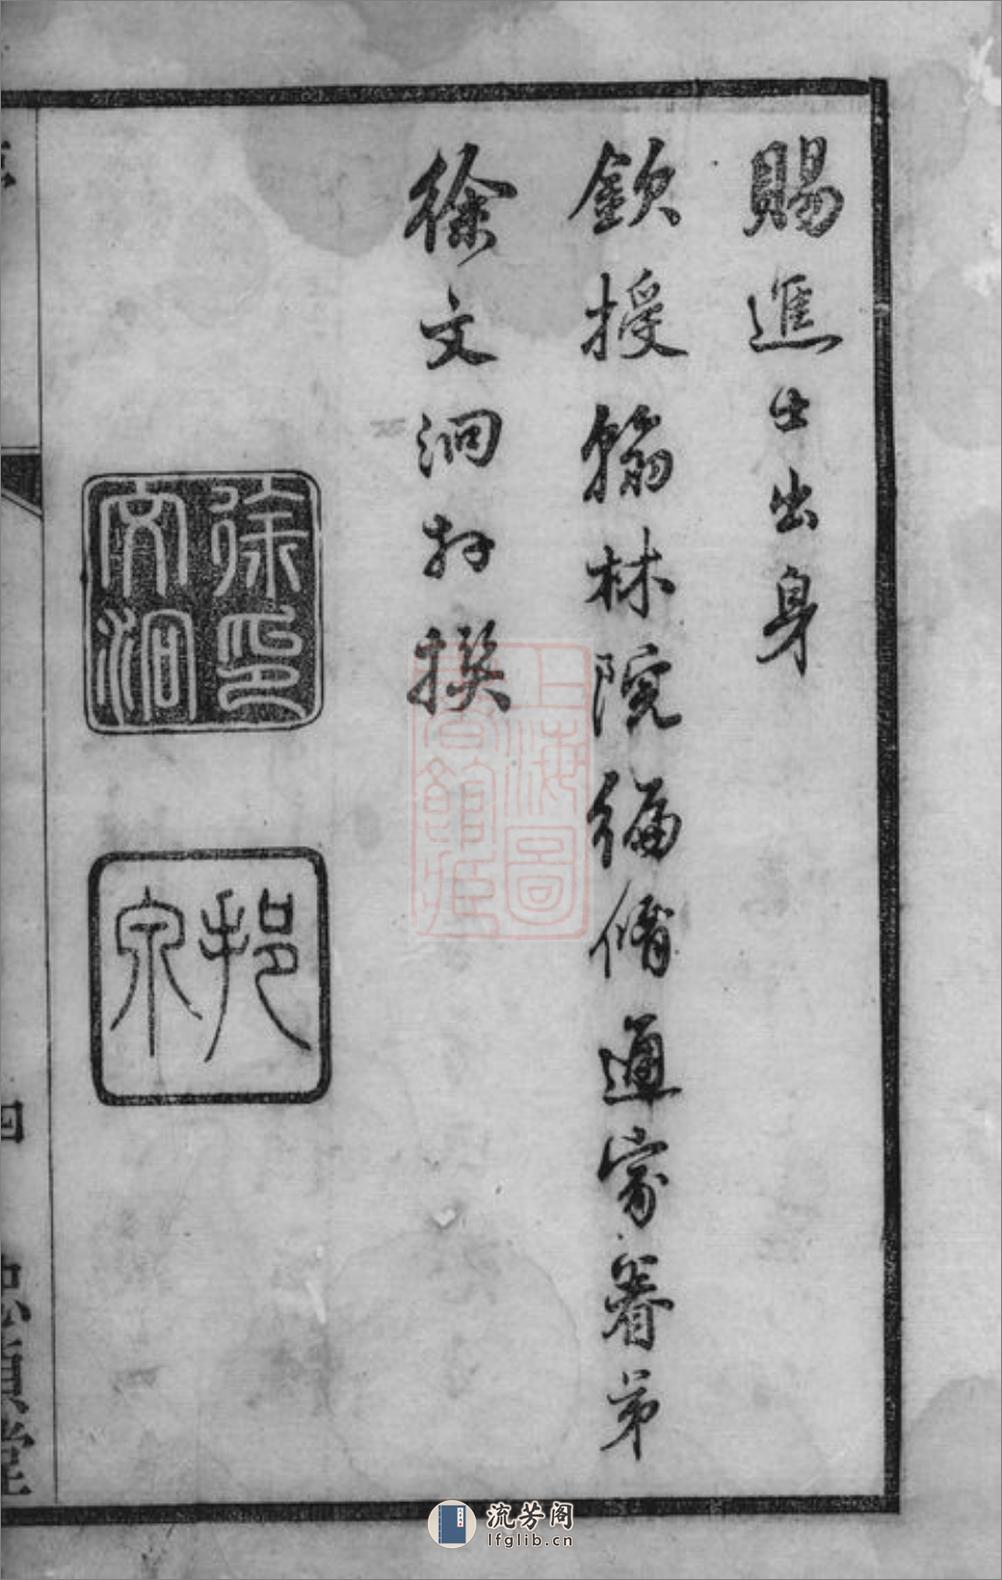 賜進士出身
欽授翰林院編脩通家眷弟
徐文泂拜撰
徐印文泂
邨泉
上海圖書館藏
四
流芳阁
lfglib.cn